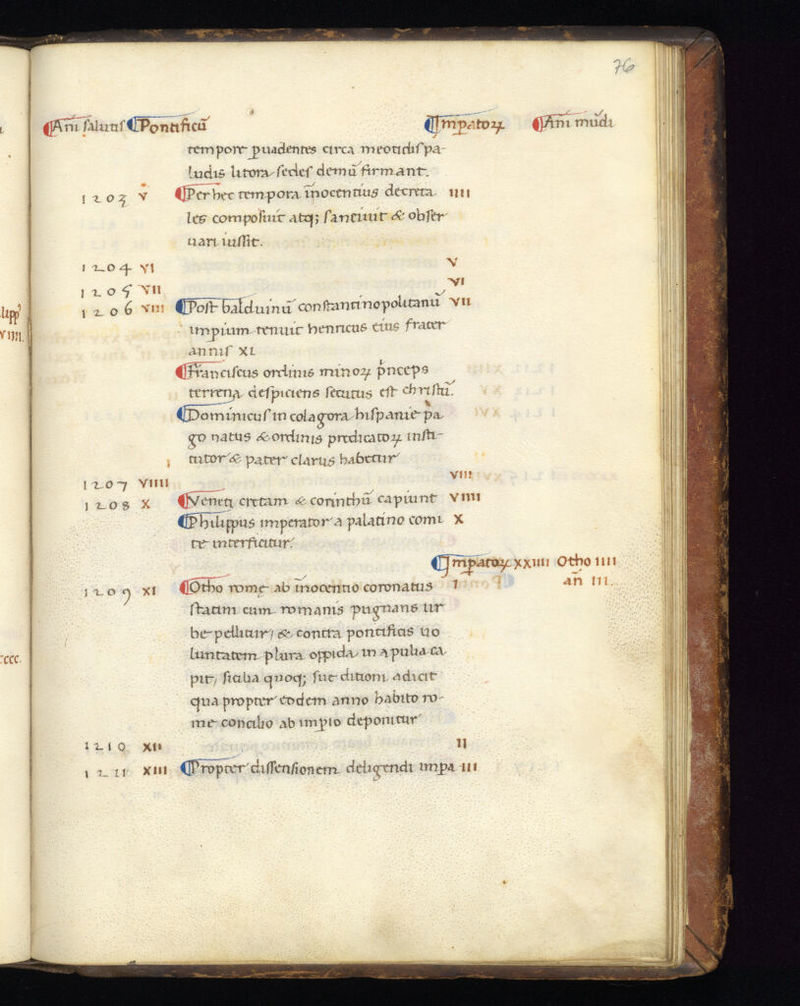 76
Ani salutis Pontificũ Impatoꝝ Ani mũdi
tempore ꝑuadentes circa meotidis pa-
ludis litora sedes demũ firmant.
1203 V Per hec tempora ĩnocentius decreta IIII
les composuit atqꝫ sanciuit & obser
uari iussit.
1204 VI V
1205 VII VI
1206 VIII Post balduinũ constantinopolitanũ VII
impium tenuit henricus eius frater
annis XI
Franciscus ordinis minoꝝ pͥnceps
terrena despiciens secutus est christũ.
Dominicus in colagora hispanie pa
go natus & ordinis predicatoꝝ insti-
tutor & pater clarus habetur
1207 VIIII VIII
1208 X Veneti cretam & corinthũ capiunt VIIII
Philippus imperator a palatino comi X
te interficitur.
Impatoꝝ XXIIII Otho IIII
1209 XI Otho rome ab ĩnocentio coronatus I an̄ III.
statim cum romanis pugnans ur
be pellitur, & contra pontificis uo
luntatem plura oppida in apulia ca
pit, sicilia quoqꝫ sue ditioni adicit
qua propter eodem anno habito ro-
me concilio ab impio deponitur
1210 XII II
1211 XIII Propter dissensionem deligendi impa III
lipp⁹
VIIII.
cccc.